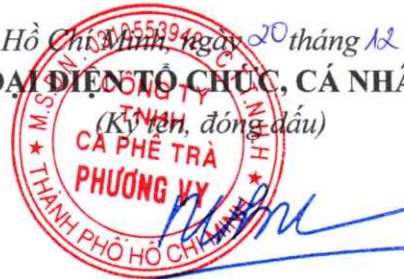 Hồ Chí Minh, ngày 20 tháng 12
ĐẠI DIỆN TỔ CHỨC, CÁ NHÂ
(Ký tên, đóng dấu)
M.S.D.N: C.T.T.N.H.H
CÔNG TY
TNHH
CÀ PHÊ TRÀ
PHƯƠNG VY
THÀNH PHỐ HỒ CHÍ MINH